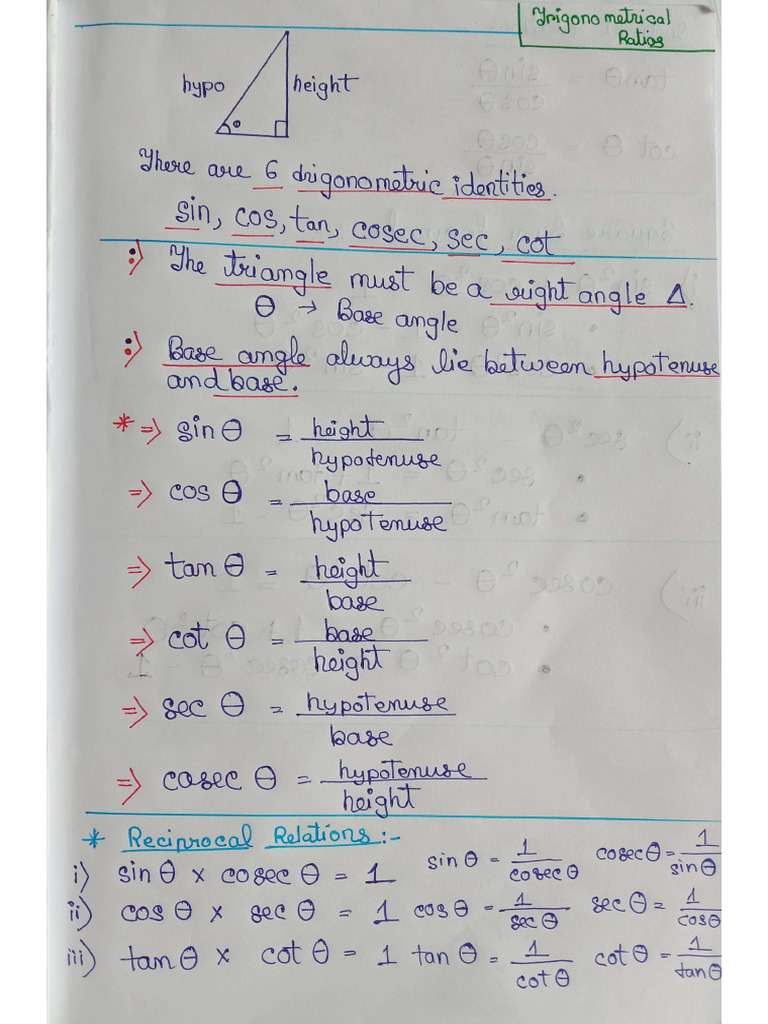 Trigonometrical
Ratios
hypo
height
θ
There are 6 trigonometric identities.
sin, cos, tan, cosec, sec, cot
:) The triangle must be a right angle Δ.
θ → Base angle
:) Base angle always lie between hypotenuse
and base.
* => sin θ = height / hypotenuse
=> cos θ = base / hypotenuse
=> tan θ = height / base
=> cot θ = base / height
=> sec θ = hypotenuse / base
=> cosec θ = hypotenuse / height
* Reciprocal Relations:-
i) sin θ × cosec θ = 1 sin θ = 1 / cosec θ cosec θ = 1 / sin θ
ii) cos θ × sec θ = 1 cos θ = 1 / sec θ sec θ = 1 / cos θ
iii) tan θ × cot θ = 1 tan θ = 1 / cot θ cot θ = 1 / tan θ